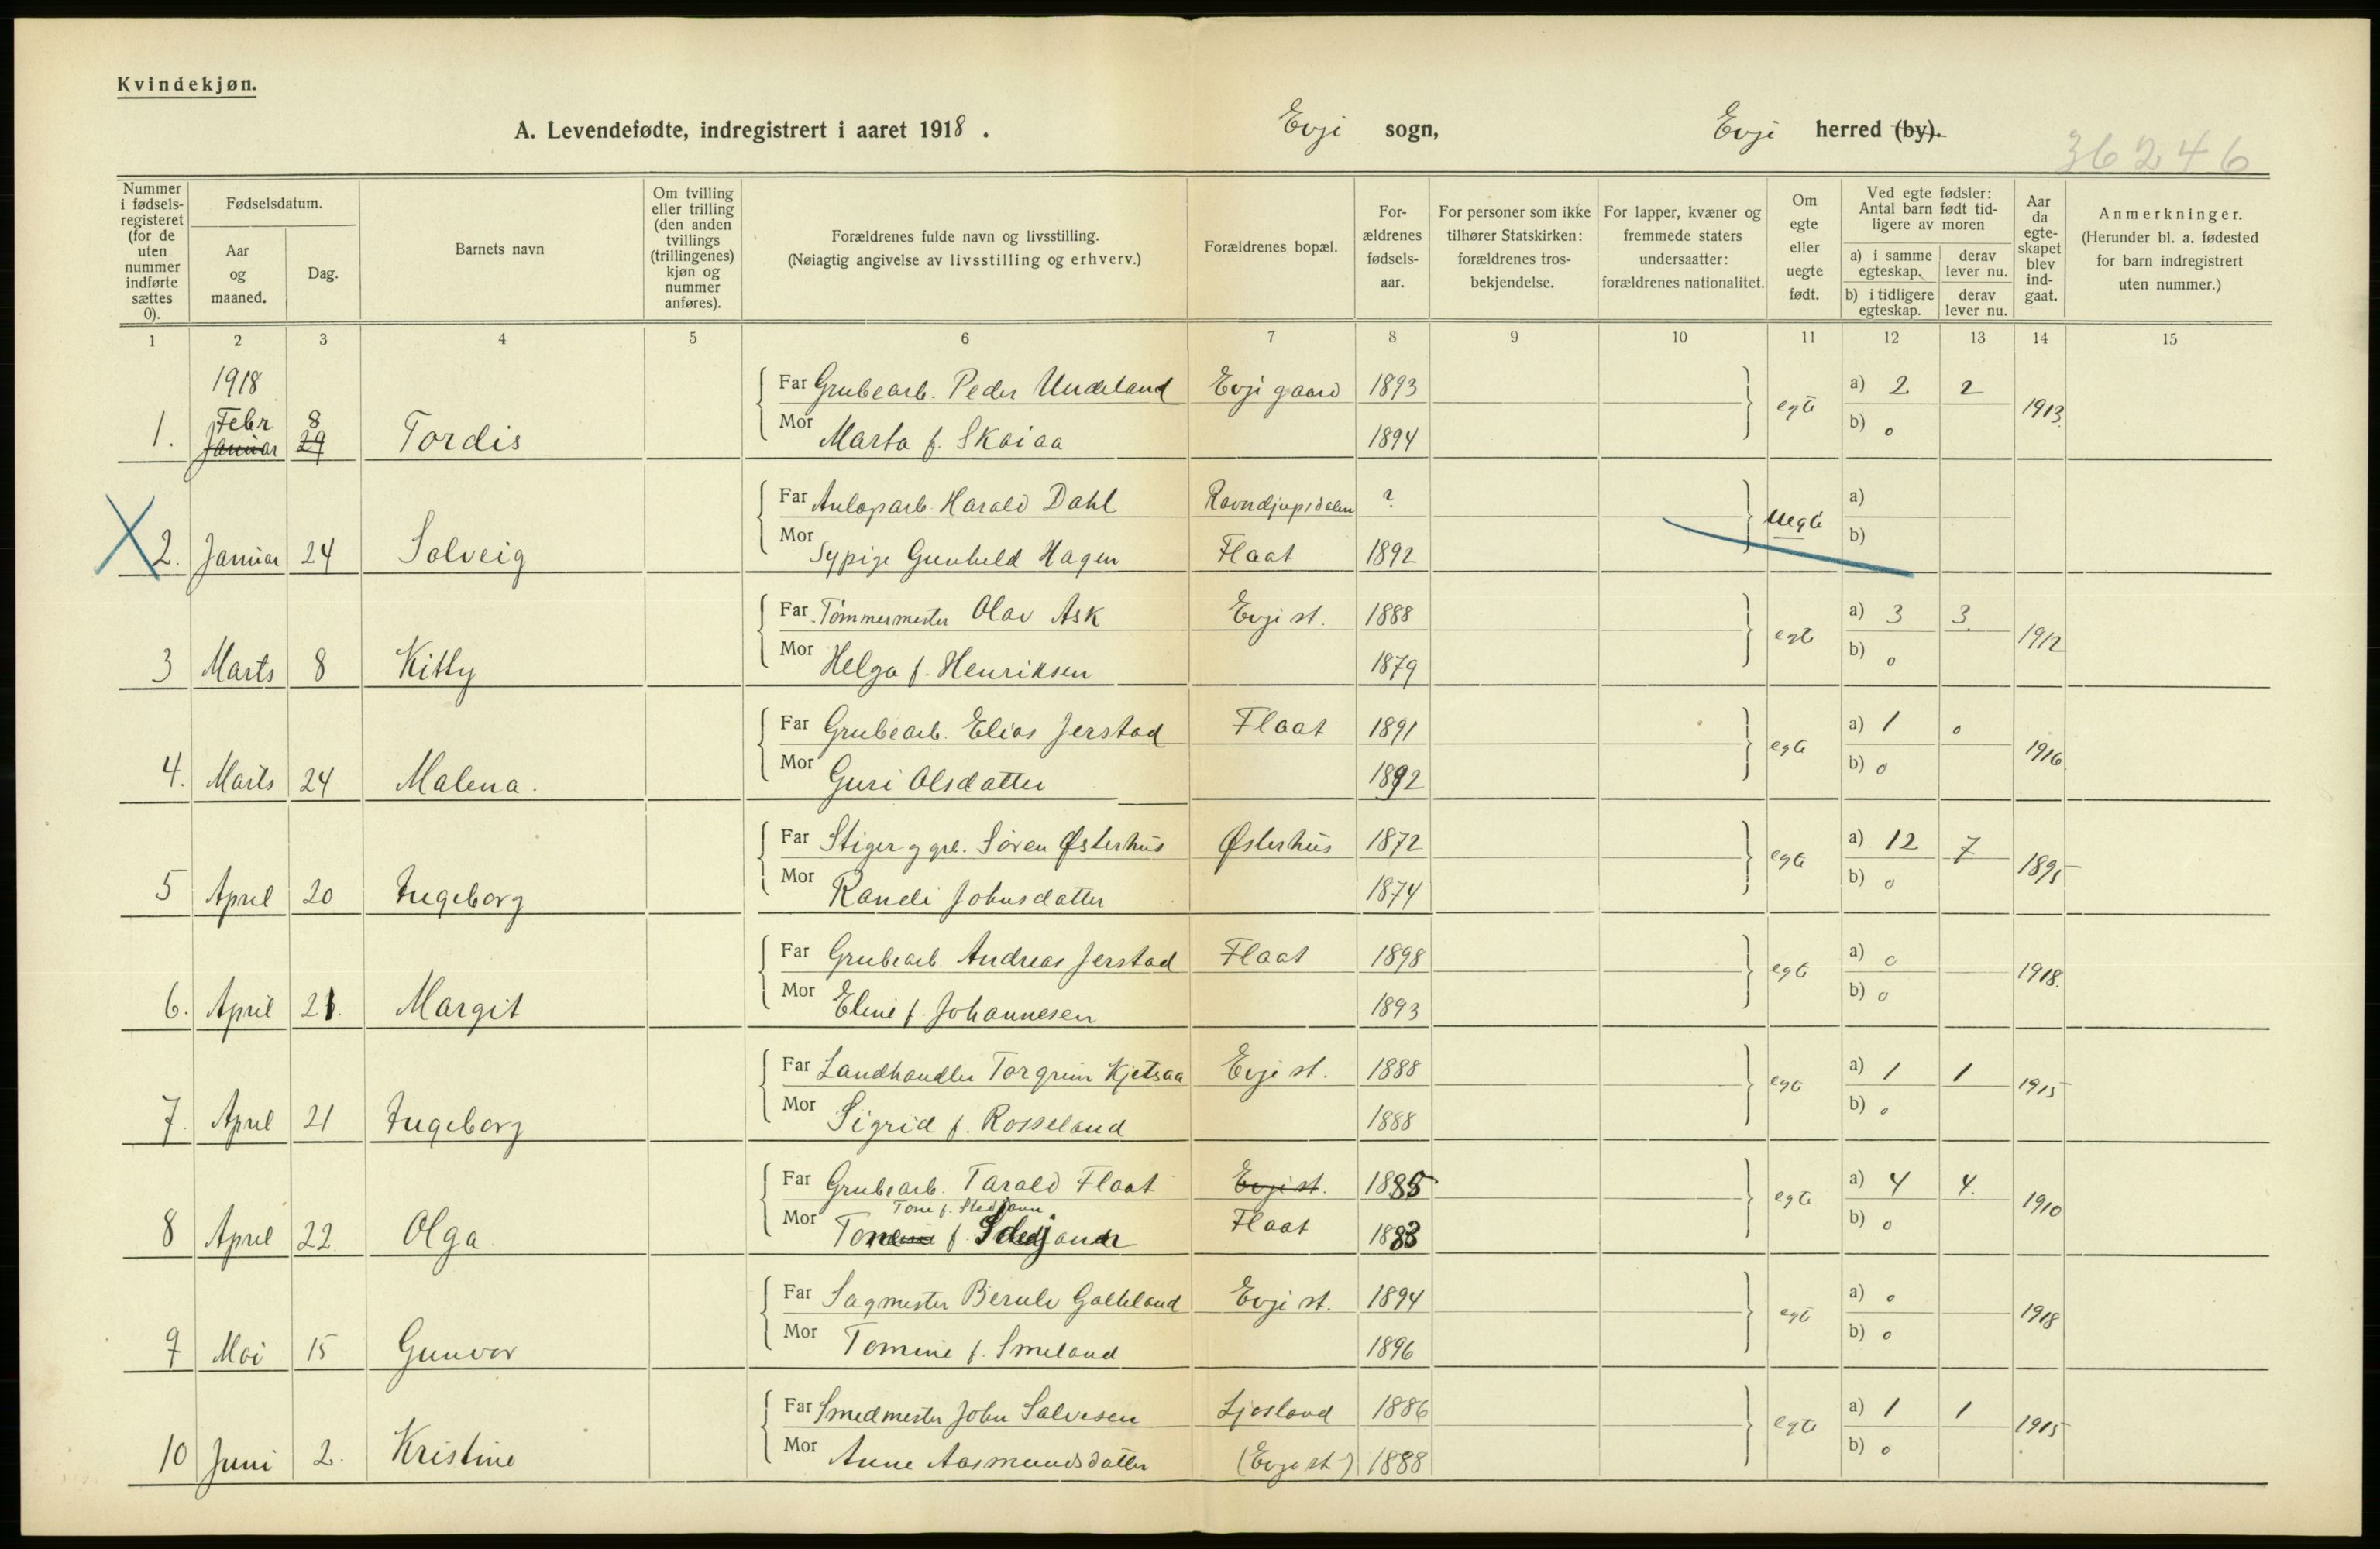 Kvindekjøn.
A. Levendefødte, indregistrert i aaret 1918 . Evji sogn, Evji herred (by).
36246
Nummer i fødsels-registeret (for de uten nummer indførte sættes 0).
Fødselsdatum.
Aar og maaned.
Dag.
Barnets navn
Om tvilling eller trilling (den anden tvillings (trillingenes) kjøn og nummer anføres).
Forældrenes fulde navn og livsstilling.
(Nøiagtig angivelse av livsstilling og erhverv.)
Forældrenes bopæl.
For-ældrenes fødsels-aar.
For personer som ikke tilhører Statskirken: forældrenes tros-bekjendelse.
For lapper, kvæner og fremmede staters undersaatter: forældrenes nationalitet.
Om egte eller uegte født.
Ved egte fødsler: Antal barn født tid-ligere av moren
a) i samme egteskap. derav lever nu.
b) i tidligere egteskap. derav lever nu.
Aar da egte-skapet blev ind-gaat.
Anmerkninger.
(Herunder bl. a. fødested for barn indregistrert uten nummer.)
1 2 3 4 5 6 7 8 9 10 11 12 13 14 15
1918
Far Grubearb. Peder Undeland Evji gaard 1893 a) 2 2
1. Febr 8 Januar 29 Tordis Mor Marta f. Skaiaa 1894 egte b) 0 1913.
Far Anlaparb. Harald Dahl Ravndjupsdalen ? a)
2. Januar 24 Solveig Mor Sypige Gunhild Hagen Flaat 1892 uegte b)
Far Tømmermester Olav Ask Evji st. 1888 a) 3 3.
3 Marts 8 Kitty Mor Helga f. Henriksen 1879 egte b) 0 1912
Far Grubearb. Elias Jerstad Flaat 1891 a) 1 0
4. Marts 24 Malena. Mor Guri Olsdatter 1892 egte b) 0 1916.
Far Stiger g grb. Søren Østerhus Østerhus 1872 a) 12 7
5 April 20 Ingeborg Mor Randi Johnsdatter 1874 egte b) 0 1895
Far Grubearb. Andreas Jerstad Flaat 1898 a) 0
6. April 21. Margit Mor Eline f. Johannesen 1893 egte b) 0 1918.
Far Landhandler Torgrim Kjetsaa Evje st. 1888 a) 1 1
7. April 21 Ingeborg Mor Sigrid f. Rosseland 1888 egte b) 0 1915
Far Grubearb. Tarald Flaat Evji st. 1885 a) 4 4.
Tone f.
8 April 22. Olga. Mor f. Flaat 1883 egte b) 0 1910
Far Sagmester Berulv Galteland Evji st. 1894 a) 0
9 Mai 15 Gunvor Mor Tomine f. Smeland 1896 egte b) 0 1918
Far Smedmester John Salvesen Ljosland 1886 a) 1 1
10 Juni 2. Kristine Mor Anne Aasmundsdatter (Evje st) 1888 egte b) 0 1915